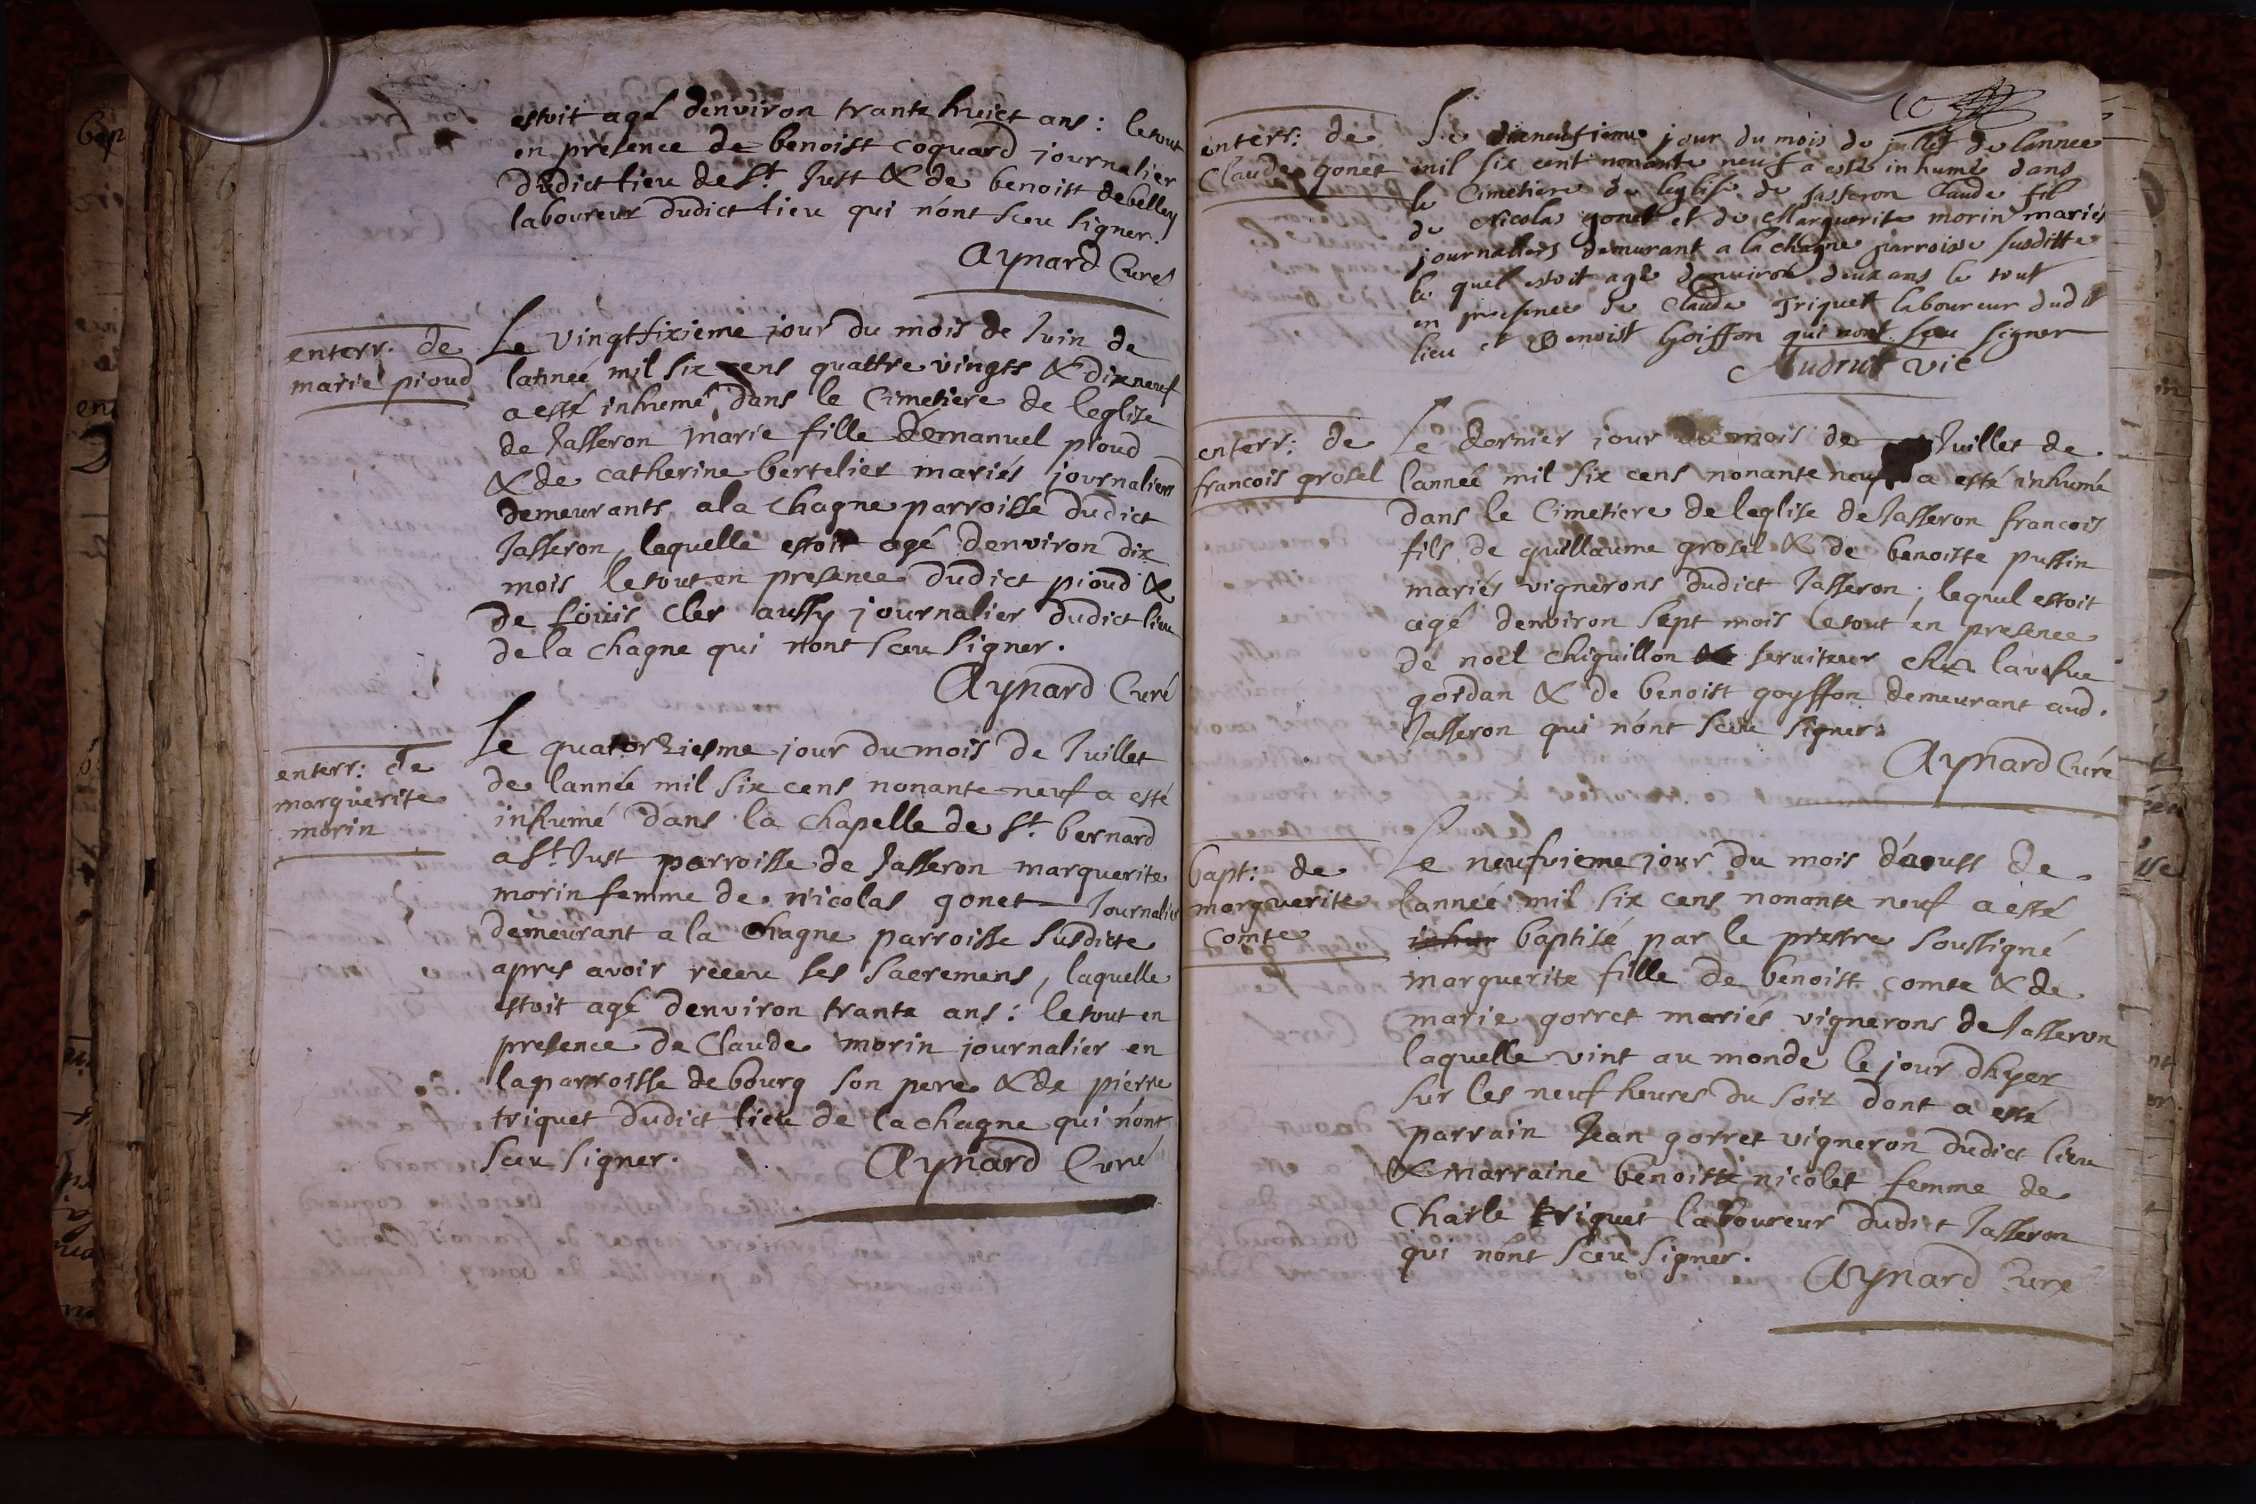 estoit agé denviron trante huict ans : le tout
en presence de benoist coquard journalier
dudict lieu de St. Just & de benoist debelley
laboureur dudict lieu qui n'ont sceu signer.
Aynard Curé
enterr. de
marie pioud
Le vingtsixieme jour du mois de Juin de
lannée mil six cens quattre vingts & dixneuf
a esté inhumé dans le Cimetiere de leglise
de Jasseron marie fille démanuel pioud
& de catherine bertelier mariés journaliers
demeurants a la chagne parroisse dudict
Jasseron, lequelle estoit agé denviron dix
mois le tout en presence dudict pioud &
de Louis Cler aussy journalier dudict lieu
de la chagne qui n'ont sceu signer.
Aynard Curé
enterr: de
marguerite
morin
Le quatorziesme jour du mois de Juillet
de lannée mil six cens nonante neuf a esté
inhumé dans la chapelle de St. bernard
a St. Just parroisse de Jasseron marguerite
morin femme de nicolas gonet Journalier
demeurant a la Chagne parroisse susdicte
apres avoir receu ses sacremens, laquelle
estoit agé denviron trante ans : le tout en
presence de Claude morin journalier en
la parroisse de bourg son pere & de pierre
triquet dudict lieu de la chagne qui n'ont
sceu signer.
Aynard Curé
enterr: de
Claude gonet
Le dixneufieme jour du mois de jullet de lannee
mil six cent nonante neuf a esté inhumé dans
le Cimetiere de leglise de Jasseron Claude fil
de Nicolas gonet et de Marguerite morin mariés
journalliers demurant a la chagne parroisse susditte
le quel estoit agé denviron deux ans le tout
en presence de Claude Triquet laboureur dudit
lieu et Benoist Goiffon qui nont sceu signer
Audrut vic
enterr: de
francois grosel
Le dernier jour du mois de Juillet de
lannée mil six cens nonante neuf a esté inhumé
dans le Cimetiere de leglise de Jasseron francois
fils de guillaume grosel & de benoiste pussin
mariés vignerons dudict Jasseron, lequel estoit
agé denviron sept mois le tout en presence
de noel chiquillon serviteur chez la vefve
gordan & de benoist goyffon demeurant aud.
Jasseron qui n'ont sceu signer
Aynard Curé
bapt: de
marguerite
Comte
Le neufvieme jour du mois d'aoust de
lannée mil six cens nonante neuf a esté
inhum baptisé par le prestre soussigné
marguerite fille de benoist comte & de
marie gorret mariés vignerons de Jasseron
laquelle vint au monde le jour dhyer
sur les neuf heures du soir dont a esté
parrain Jean gorret vigneron dudict lieu
& marraine benoiste nicolet femme de
Charle triquet laboureur dudict Jasseron
qui n'ont sceu signer.
Aynard Curé